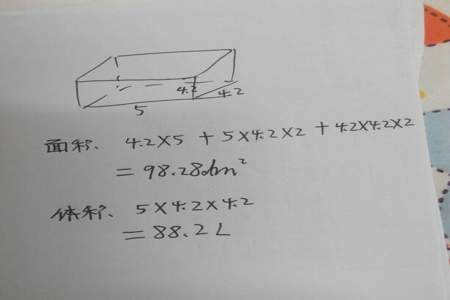 4.2
4.2
5
面积、4.2×5 + 5×4.2×2 + 4.2×4.2×2
= 98.28dm²
体积、5×4.2×4.2
= 88.2L